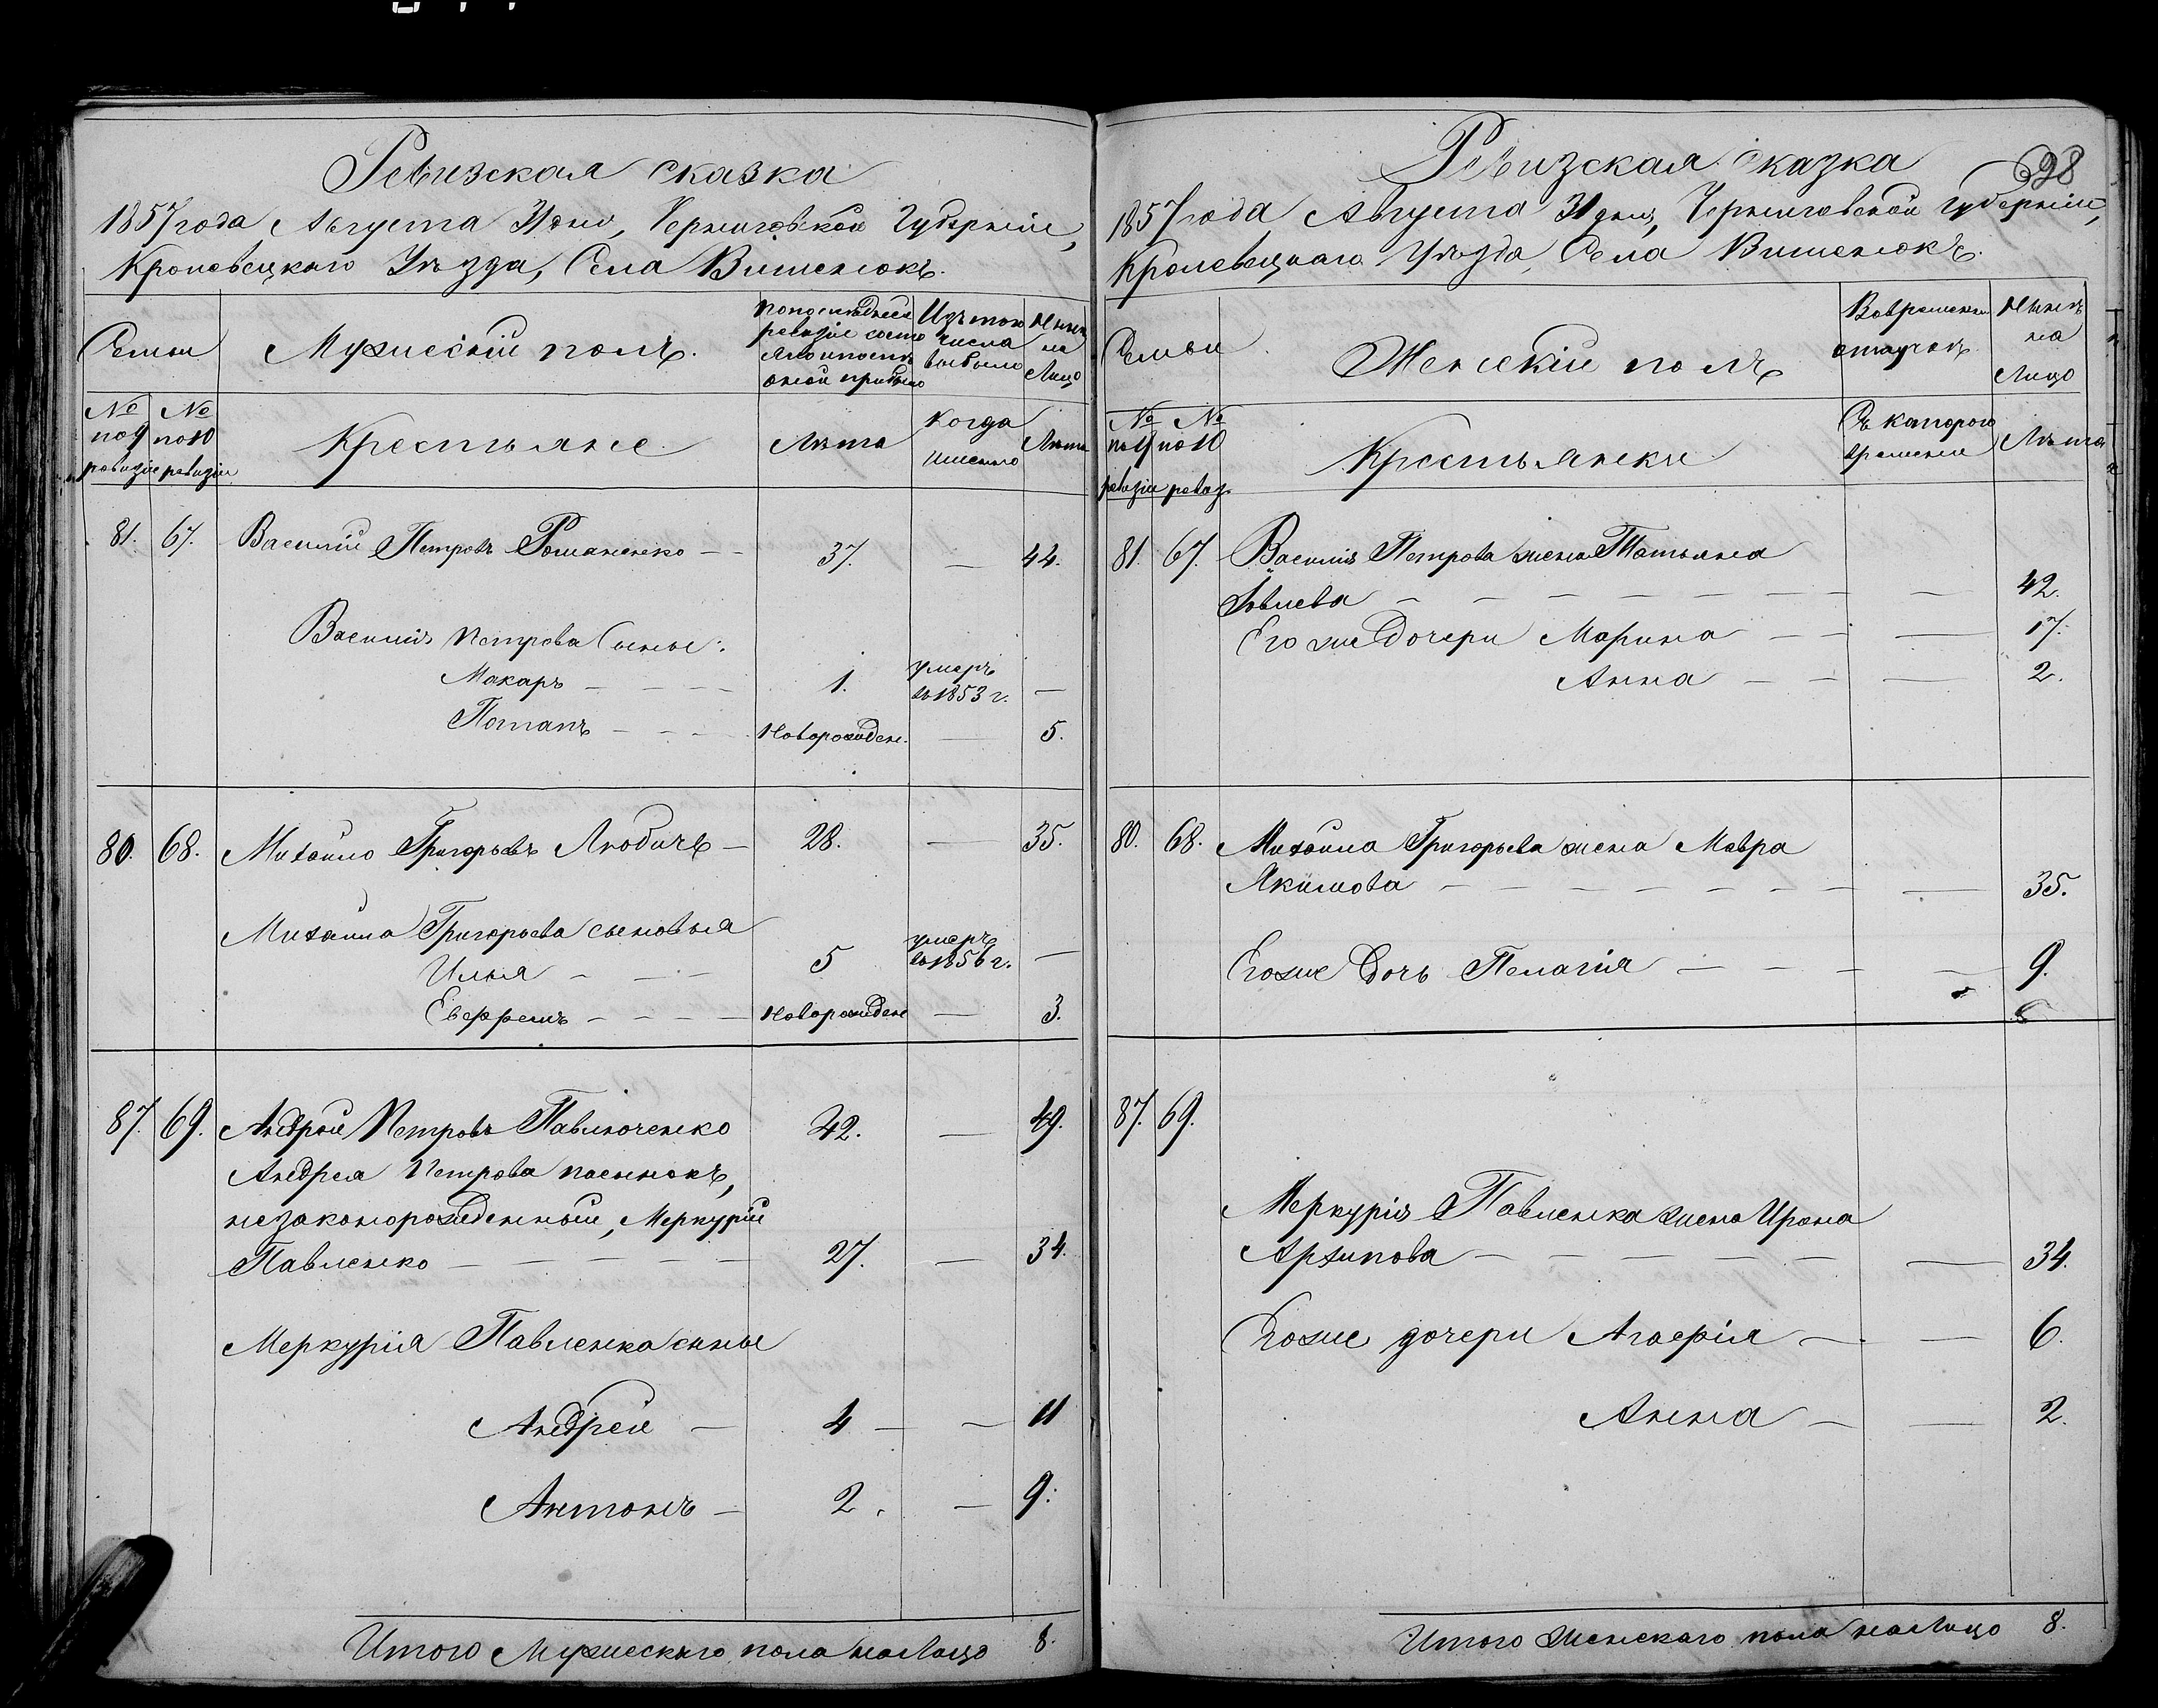 Ревизская сказка
1857 года Августа 31 дня, Черниговской Губерніи,
Кролевецкаго Уѣзда, Села Вишенокъ.
Семьи
Мужескій полъ.
По последней
ревизіи состо
яло и после
оной прибыло
Изъ того
числа
выбыло
Нынѣ
на
Лицо
№ №
по 9 по 10
ревизіи ревизіи
Крестьяне
Лѣта
Когда
именно
Лѣта
81. 67. Василій Петровъ Романенко – – 37. — 44.
Василія Петрова Сыны:
Макаръ – – – – 1. умеръ въ 1853 г. —
Потапъ – – – Новорожден. — 5.
80. 68. Михайло Григорьевъ Любичъ – 28. — 35.
Михаила Григорьева сыновья
Илья – – – 5 умеръ въ 1856 г. —
Евфремъ – – – – Новорожден — 3.
87. 69. Андрей Петровъ Павлюченко 42. — 49.
Андрея Петрова пасынокъ,
незаконорожденный, Меркурій
Павленко – – – – – 27. — 34.
Меркурія Павленка сыны
Андрей – 4 – – 11
Антонъ – 2. – 9.
Итого Мужескаго пола на Лицо 8.
698
Ревизская Сказка
1857 года Августа 31 дня, Черниговской Губерніи,
Кролевецкаго Уѣзда, Села Вишенокъ.
Семьи
Женскій полъ
Во временной
отлучкѣ
Нынѣ
на
Лицо
№ №
по 9 по 10
ревизіи ревиз.
Крестьянки
Съ котораго
времени
Лѣта
81. 67. Василія Петрова жена Татьяна
Іовлева – – – – – – – — 42.
Его же Дочери Марина – – — 17.
Анна – – — 2.
80. 68. Михаила Григорьева жена Мавра
Якимова – – – – – – – — 35.
Его же Дочь Пелагія – – – – 9.
87. 69.
Меркурія Павленка жена Ирина
Архипова – – – – – — 34.
Его же дочери Агафія – — 6.
Анна – — 2.
Итого Женскаго пола на Лицо 8.